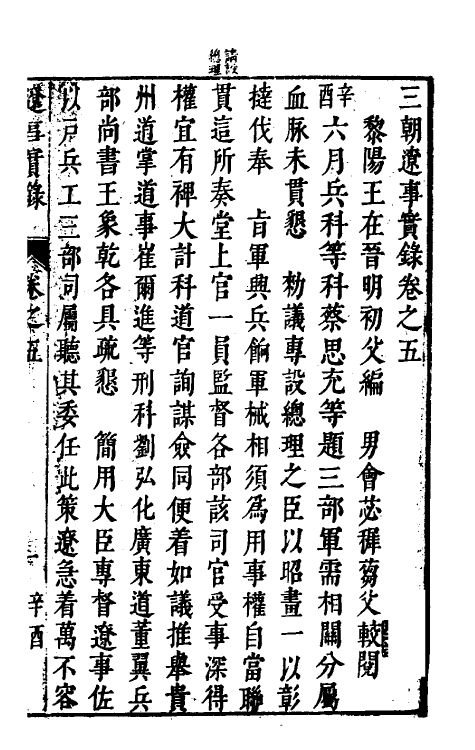 請設
總理
三朝遼事實錄卷之五
黎陽王在晉明初父編　男會苾穉蒭父較閱
辛酉六月兵科等科蔡思充等題三部軍需相關分屬
血脉未貫懇　勑議專設總理之臣以昭畫一以彰
撻伐奉　旨軍興兵餉軍械相須爲用事權自當聯
貫這所奏堂上官一員監督各部該司官受事深得
權宜有裨大計科道官詢謀僉同便着如議推舉貴
州道掌道事崔爾進等刑科劉弘化廣東道董翼兵
部尚書王象乾各具疏懇　簡用大臣專督遼事佐
以戸兵工三部司屬聽其委任此策遼急着萬不容
遼事實錄　卷之五　一　辛酉